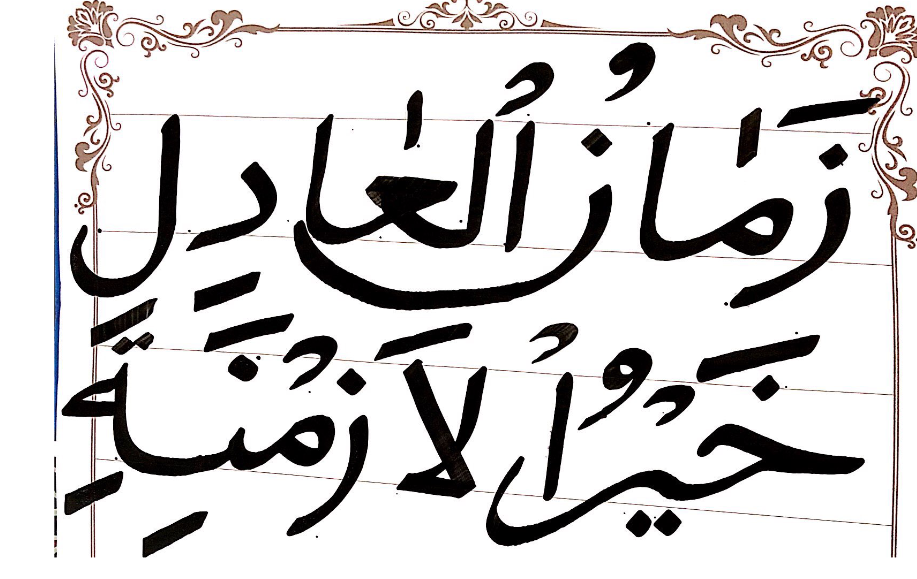 زَمٰانُ الْعٰادِلِ
خَيْرُ اْلاَزْمِنَةِ